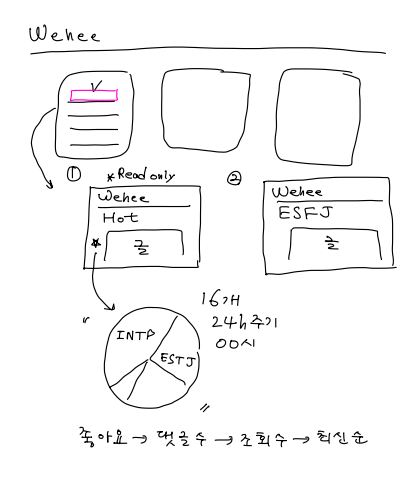 Wehee
V
①
*Read only
②
Wehee
Hot
* 글
Wehee
ESFJ
글
INTP
ESTJ
16개
24h주기
00시
좋아요 → 댓글수 → 조회수 → 최신순